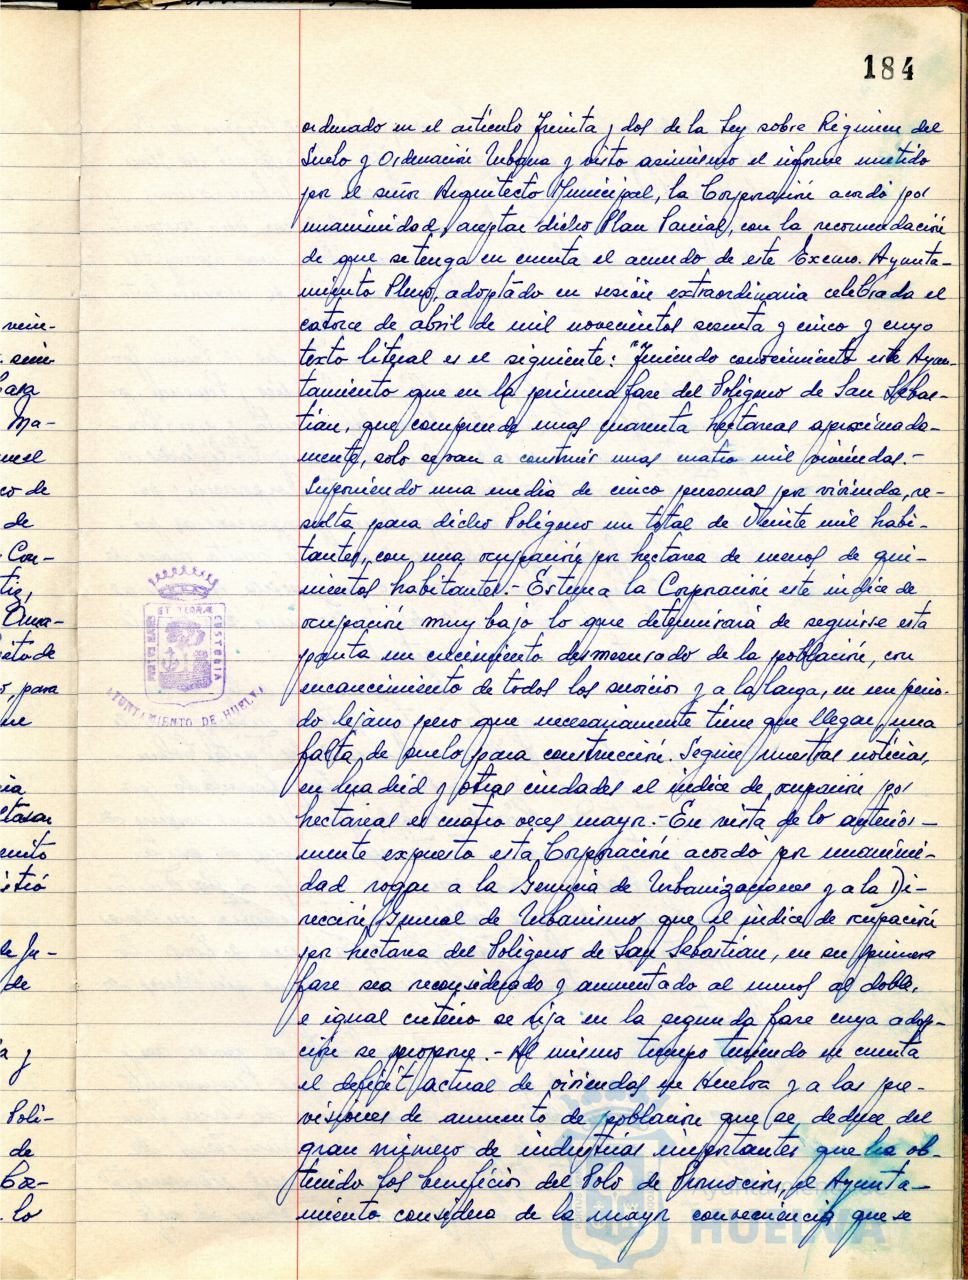 184
ordenado en el artículo Treinta y dos de la Ley sobre Régimen del
Suelo y Ordenación Urbana y visto asimismo el informe emitido
por el señor Arquitecto Municipal, la Corporación acordó por
unanimidad, aceptar dicho Plan Parcial, con la recomendación
de que se tenga en cuenta el acuerdo de este Excmo. Ayunta-
miento Pleno, adoptado en sesión extraordinaria celebrada el
catorce de abril de mil novecientos sesenta y cinco y cuyo
texto literal es el siguiente: "Teniendo conocimiento este Ayun-
tamiento que en la primera fase del Polígono de San Sebas-
tián, que comprende unas cuarenta hectáreas aproximada-
mente, solo se van a construir unas cuatro mil viviendas.-
Suponiendo una media de cinco personas por vivienda, re-
sulta para dicho Polígono un total de Veinte mil habi-
tantes, con una ocupación por hectarea de menos de qui-
nientos habitantes.- Estima la Corporación este indice de
ocupación muy bajo lo que determinará de seguirse esta
pauta un crecimiento desmesurado de la población, con
encarecimiento de todos los servicios y a la larga, en un perio-
do lejano pero que necesariamente tiene que llegar, una
falta de suelo para construcción. Según nuestras noticias,
en Madrid y otras ciudades el indice de ocupación por
hectareas es cuatro veces mayor.- En vista de lo anterior-
mente expuesto esta Corporación acordó por unanimi-
dad rogar a la Gerencia de Urbanizaciones y a la Di-
rección General de Urbanismo que el indice de ocupación
por hectarea del Polígono de San Sebastián, en su primera
fase sea reconsiderado y aumentado al menos al doble,
e igual criterio se siga en la segunda fase cuya adop-
ción se propone.- Al mismo tiempo teniendo en cuenta
el deficit actual de viviendas en Huelva y a las pre-
visiones de aumento de población que se deduce del
gran número de industrias importantes que ha ob-
tenido los beneficios del Polo de Promoción, el Ayunta-
miento considera de la mayor conveniencia que se
vein-
Ma-
co de
de
Con-
Ama-
o, para
de Ju-
de
a y
Polí-
de
lo
PORTUS MARIS ET TERRAE CUSTODIA
AYUNTAMIENTO DE HUELVA
Ayuntamiento de
HUELVA